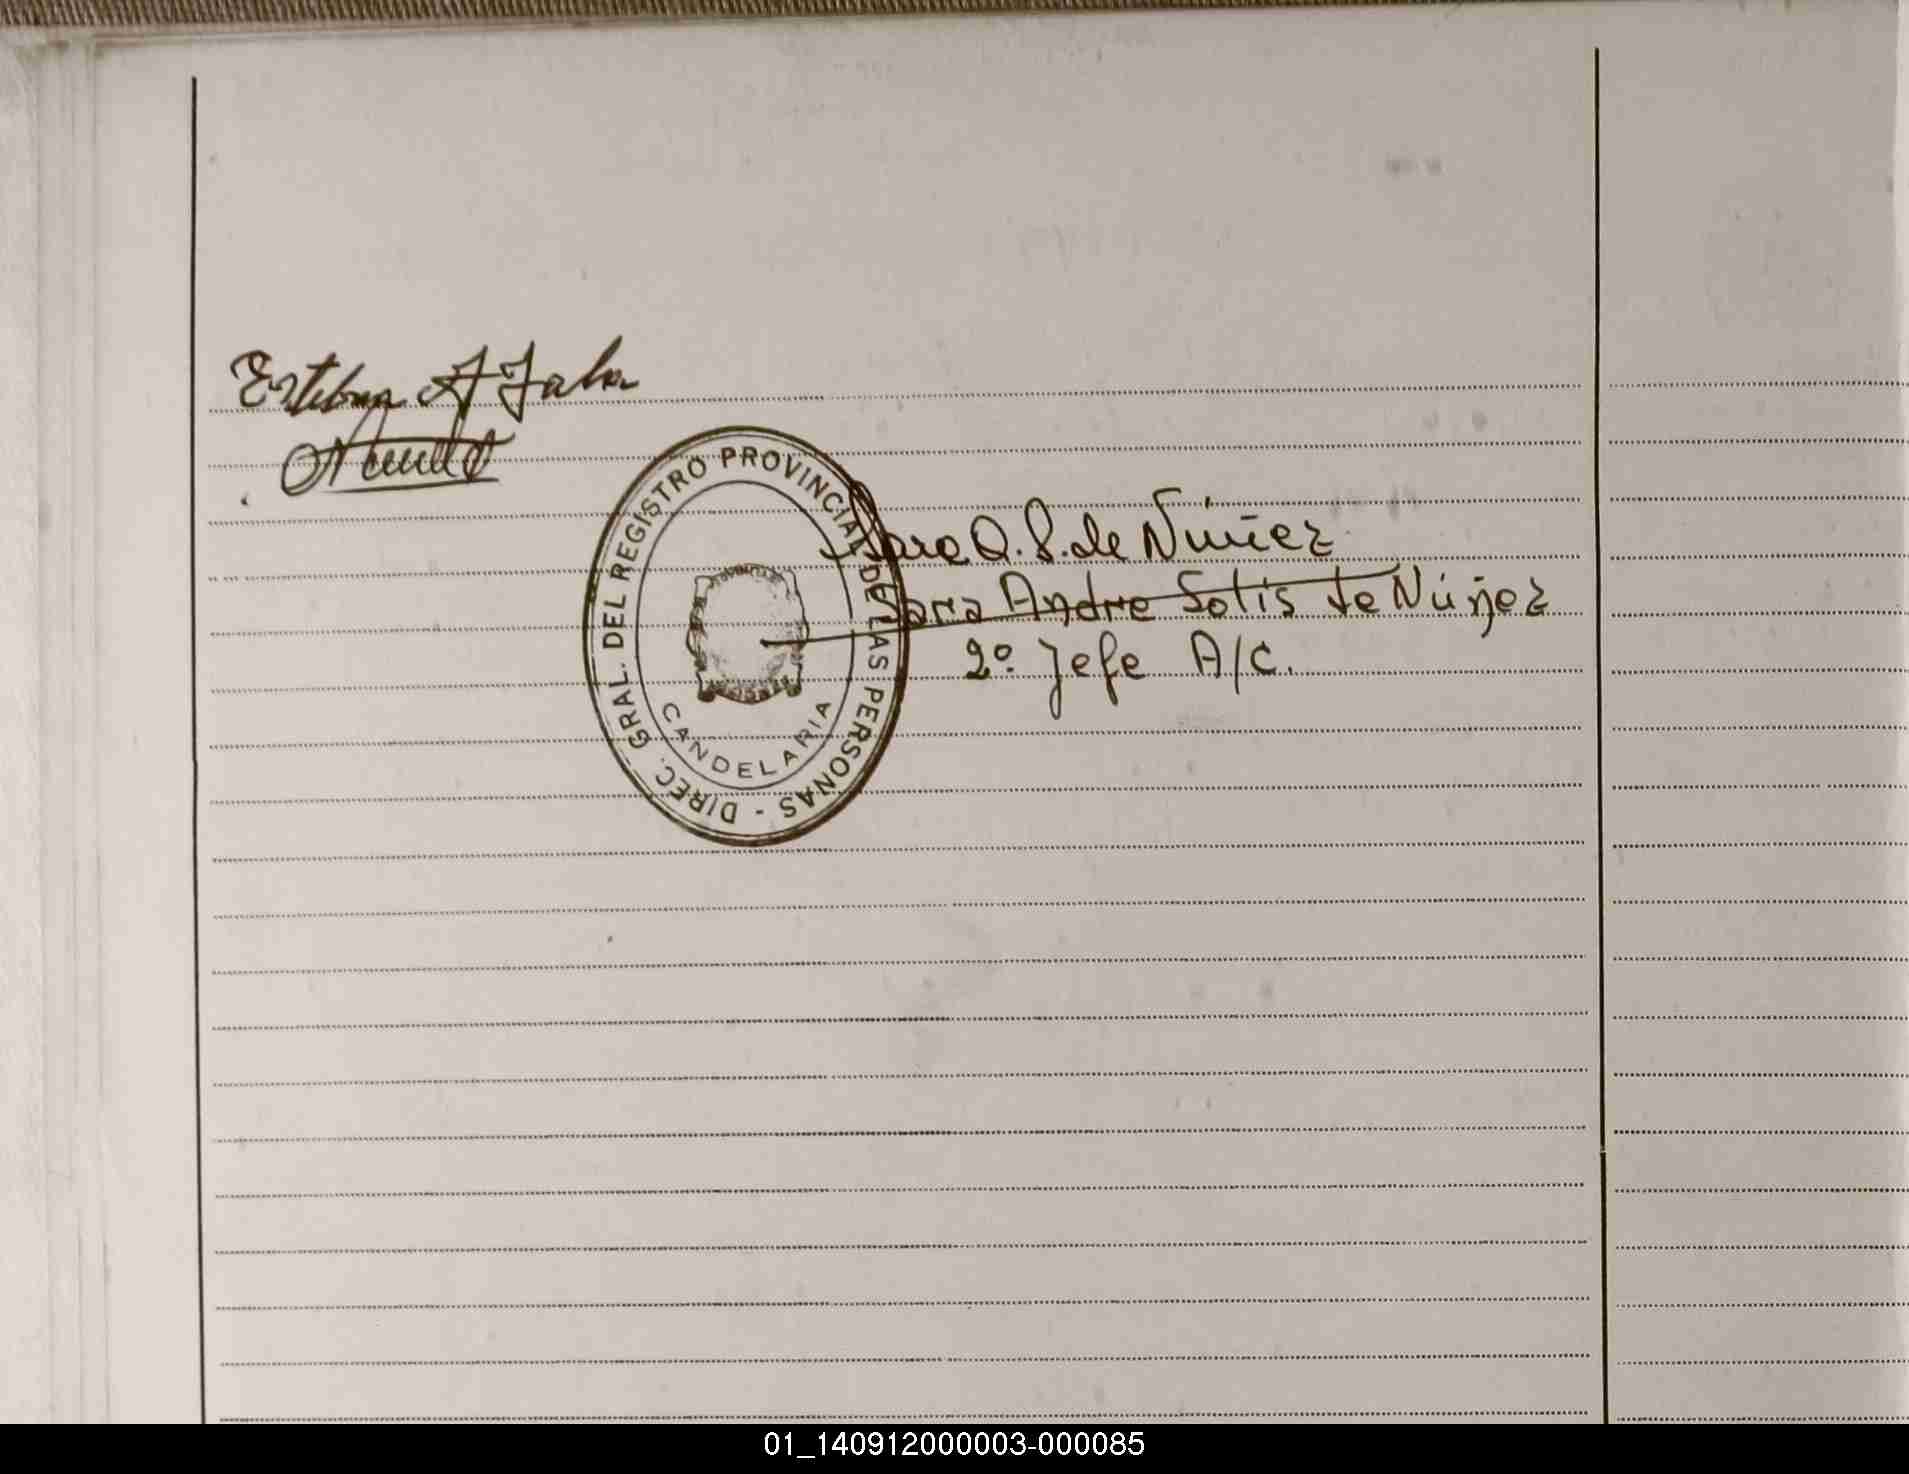 Esteban A
DIREC. GRAL. DEL REGISTRO PROVINCIAL DE LAS PERSONAS -
CANDELARIA
Sara A. S. de Núñez
Sara Andre Solis de Núñez
2º Jefe A/C.
01_140912000003-000085